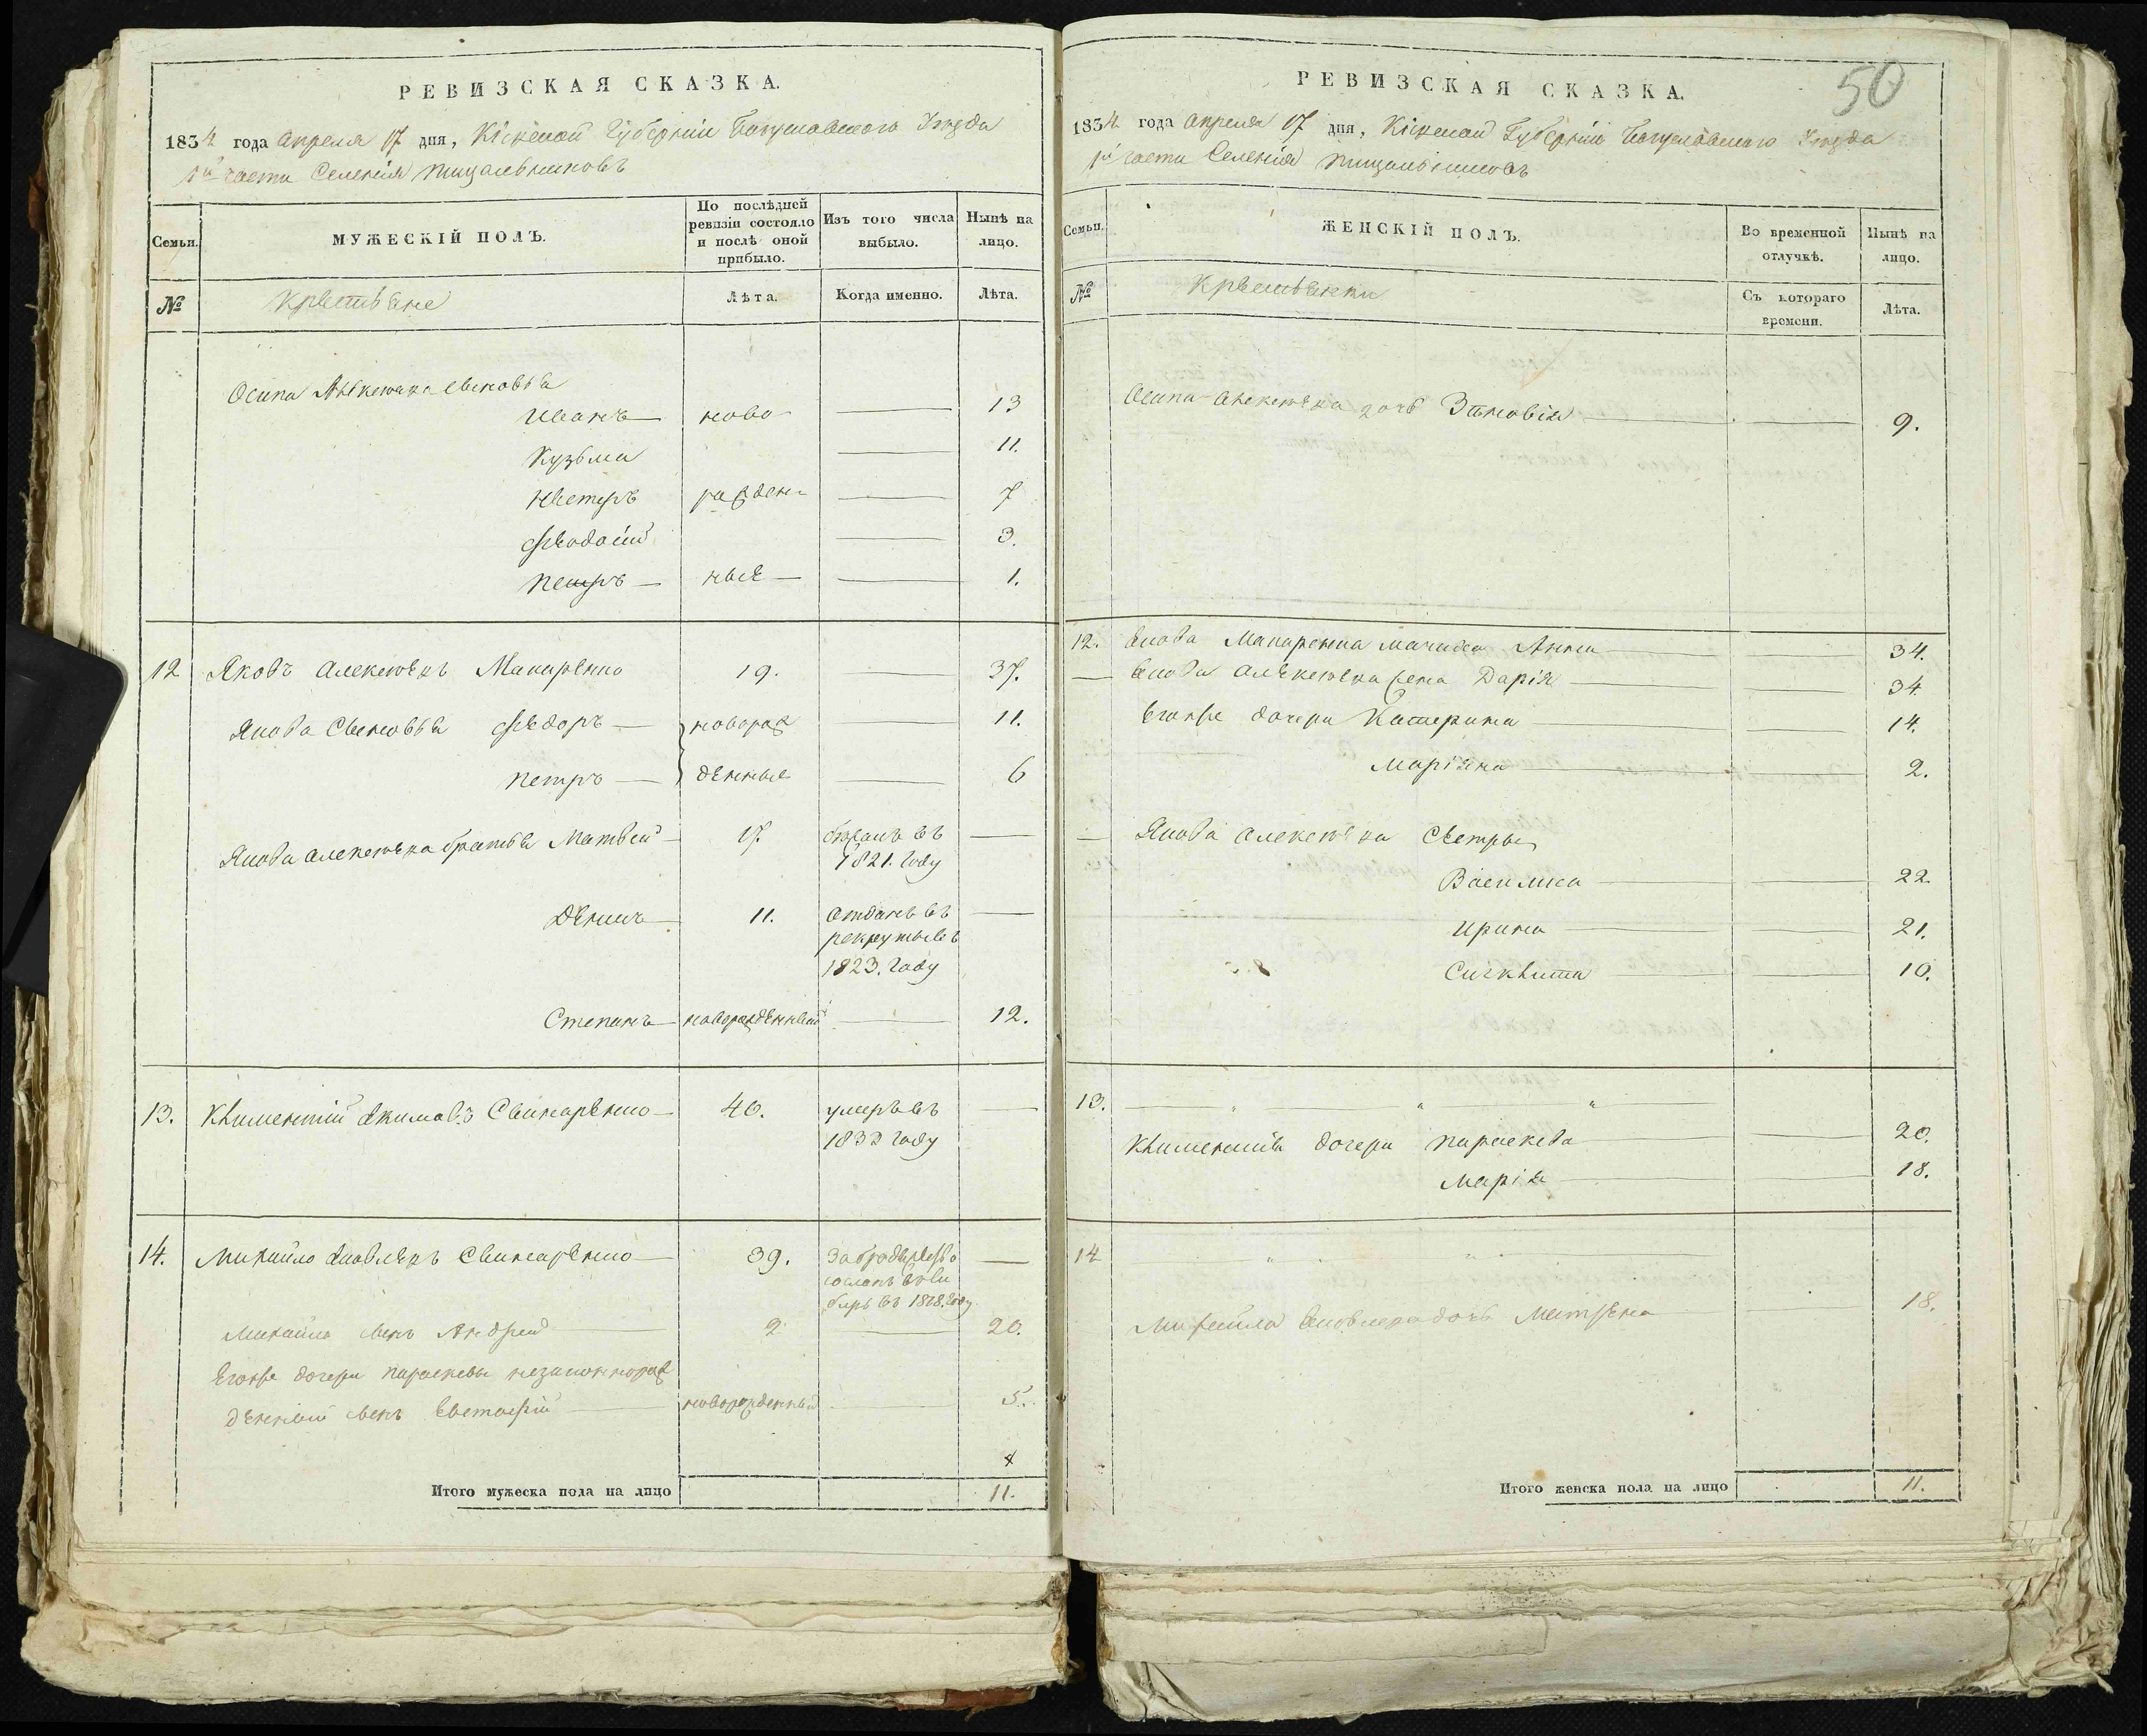 РЕВИЗСКАЯ СКАЗКА.
1834 года Апреля 17 дня, Кіевской Губерніи Богуславского Уезда
1й части Селенія Пищальниковъ
Семьи.
МУЖЕСКІЙ ПОЛЪ.
По послѣдней ревизіи состояло и послѣ оной прибыло.
Изъ того числа выбыло.
Нынѣ на лицо.
№
Крестьяне
Лѣта.
Когда именно.
Лѣта.
Осипа Алексеева сыновья
Иванъ ново 13
Кузьма 11.
Нестеръ рожден 7
Феодосій 3.
Петръ ные 1.
12 Яковъ Алексеевъ Макаренко 19. 37.
Якова Сыновья Федоръ новорож 11.
Петръ денные 6
Якова Алексеева братья Матвей 17. бежалъ въ
1821. Году
Денисъ 11. Отданъ въ
рекруты въ
1823. Году
Степанъ новорожденный 12.
13. Климентій Акимовъ Свинаренко 40. умеръ въ
Году
14. Михайло Яковлевъ Свинаренко 39. За бродяжество
сосланъ въ Си
бирь въ 1828. Году
Михайла сынъ Андрей 2 20.
Егоже дочери Параскевы незаконнорож
денный сынъ Евстафій новорожденный 5.
Итого мужеска пола на лицо 11.
50
РЕВИЗСКАЯ СКАЗКА.
1834 года Апреля 17 дня, Кіевской Губерніи Богуславского Уезда
1й части Селенія Пищальниковъ
Семьи.
ЖЕНСКІЙ ПОЛЪ.
Во временной отлучкѣ.
Нынѣ на лицо.
№
Крестьянки
Съ котораго времени.
Лѣта.
Осипа Алексеева дочь Зѣновія 9.
12. Якова Макаренка мачиха Анна 34.
Якова Алексеева жена Дарія 34
Егоже дочери Катерина 14.
Маріяна 2.
Якова Алексеева Сестры
Василиса 22
Ирина 21.
10.
13.
Климентія дочери Параскева 20.
Марія 18.
14
Михайла Яковлева дочь Матрена 18.
Итого женска пола на лицо 11.